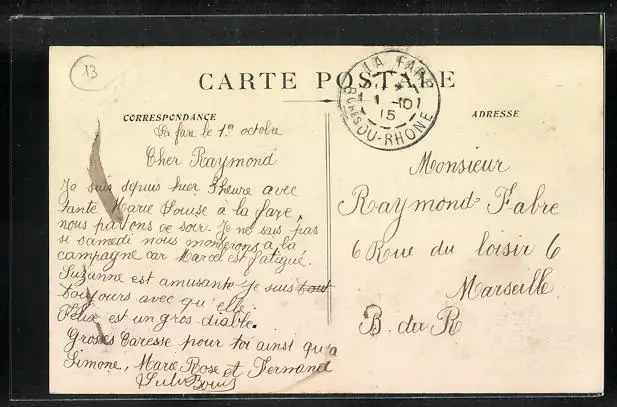 13
CARTE POSTALE
LA FARE
1-10
15
BCHES DU-RHONE
CORRESPONDANCE
ADRESSE
La fare le 1er octobre
Cher Raymond
Je suis depuis hier 3 heure avec
tante Marie Louise à la fare
nous partons ce soir. Je ne sais pas
si samedi nous monterons à la
campagne car Marcel est fatigué.
Suzanne est amusante je suis tout
toujours avec qu'elle.
Félix est un gros diable.
Grosses Caresse pour toi ainsi qu'a
Simone, Marie Rose et Fernand
Monsieur
Raymond Fabre
6 Rue du loisir 6
Marseille
B. du R